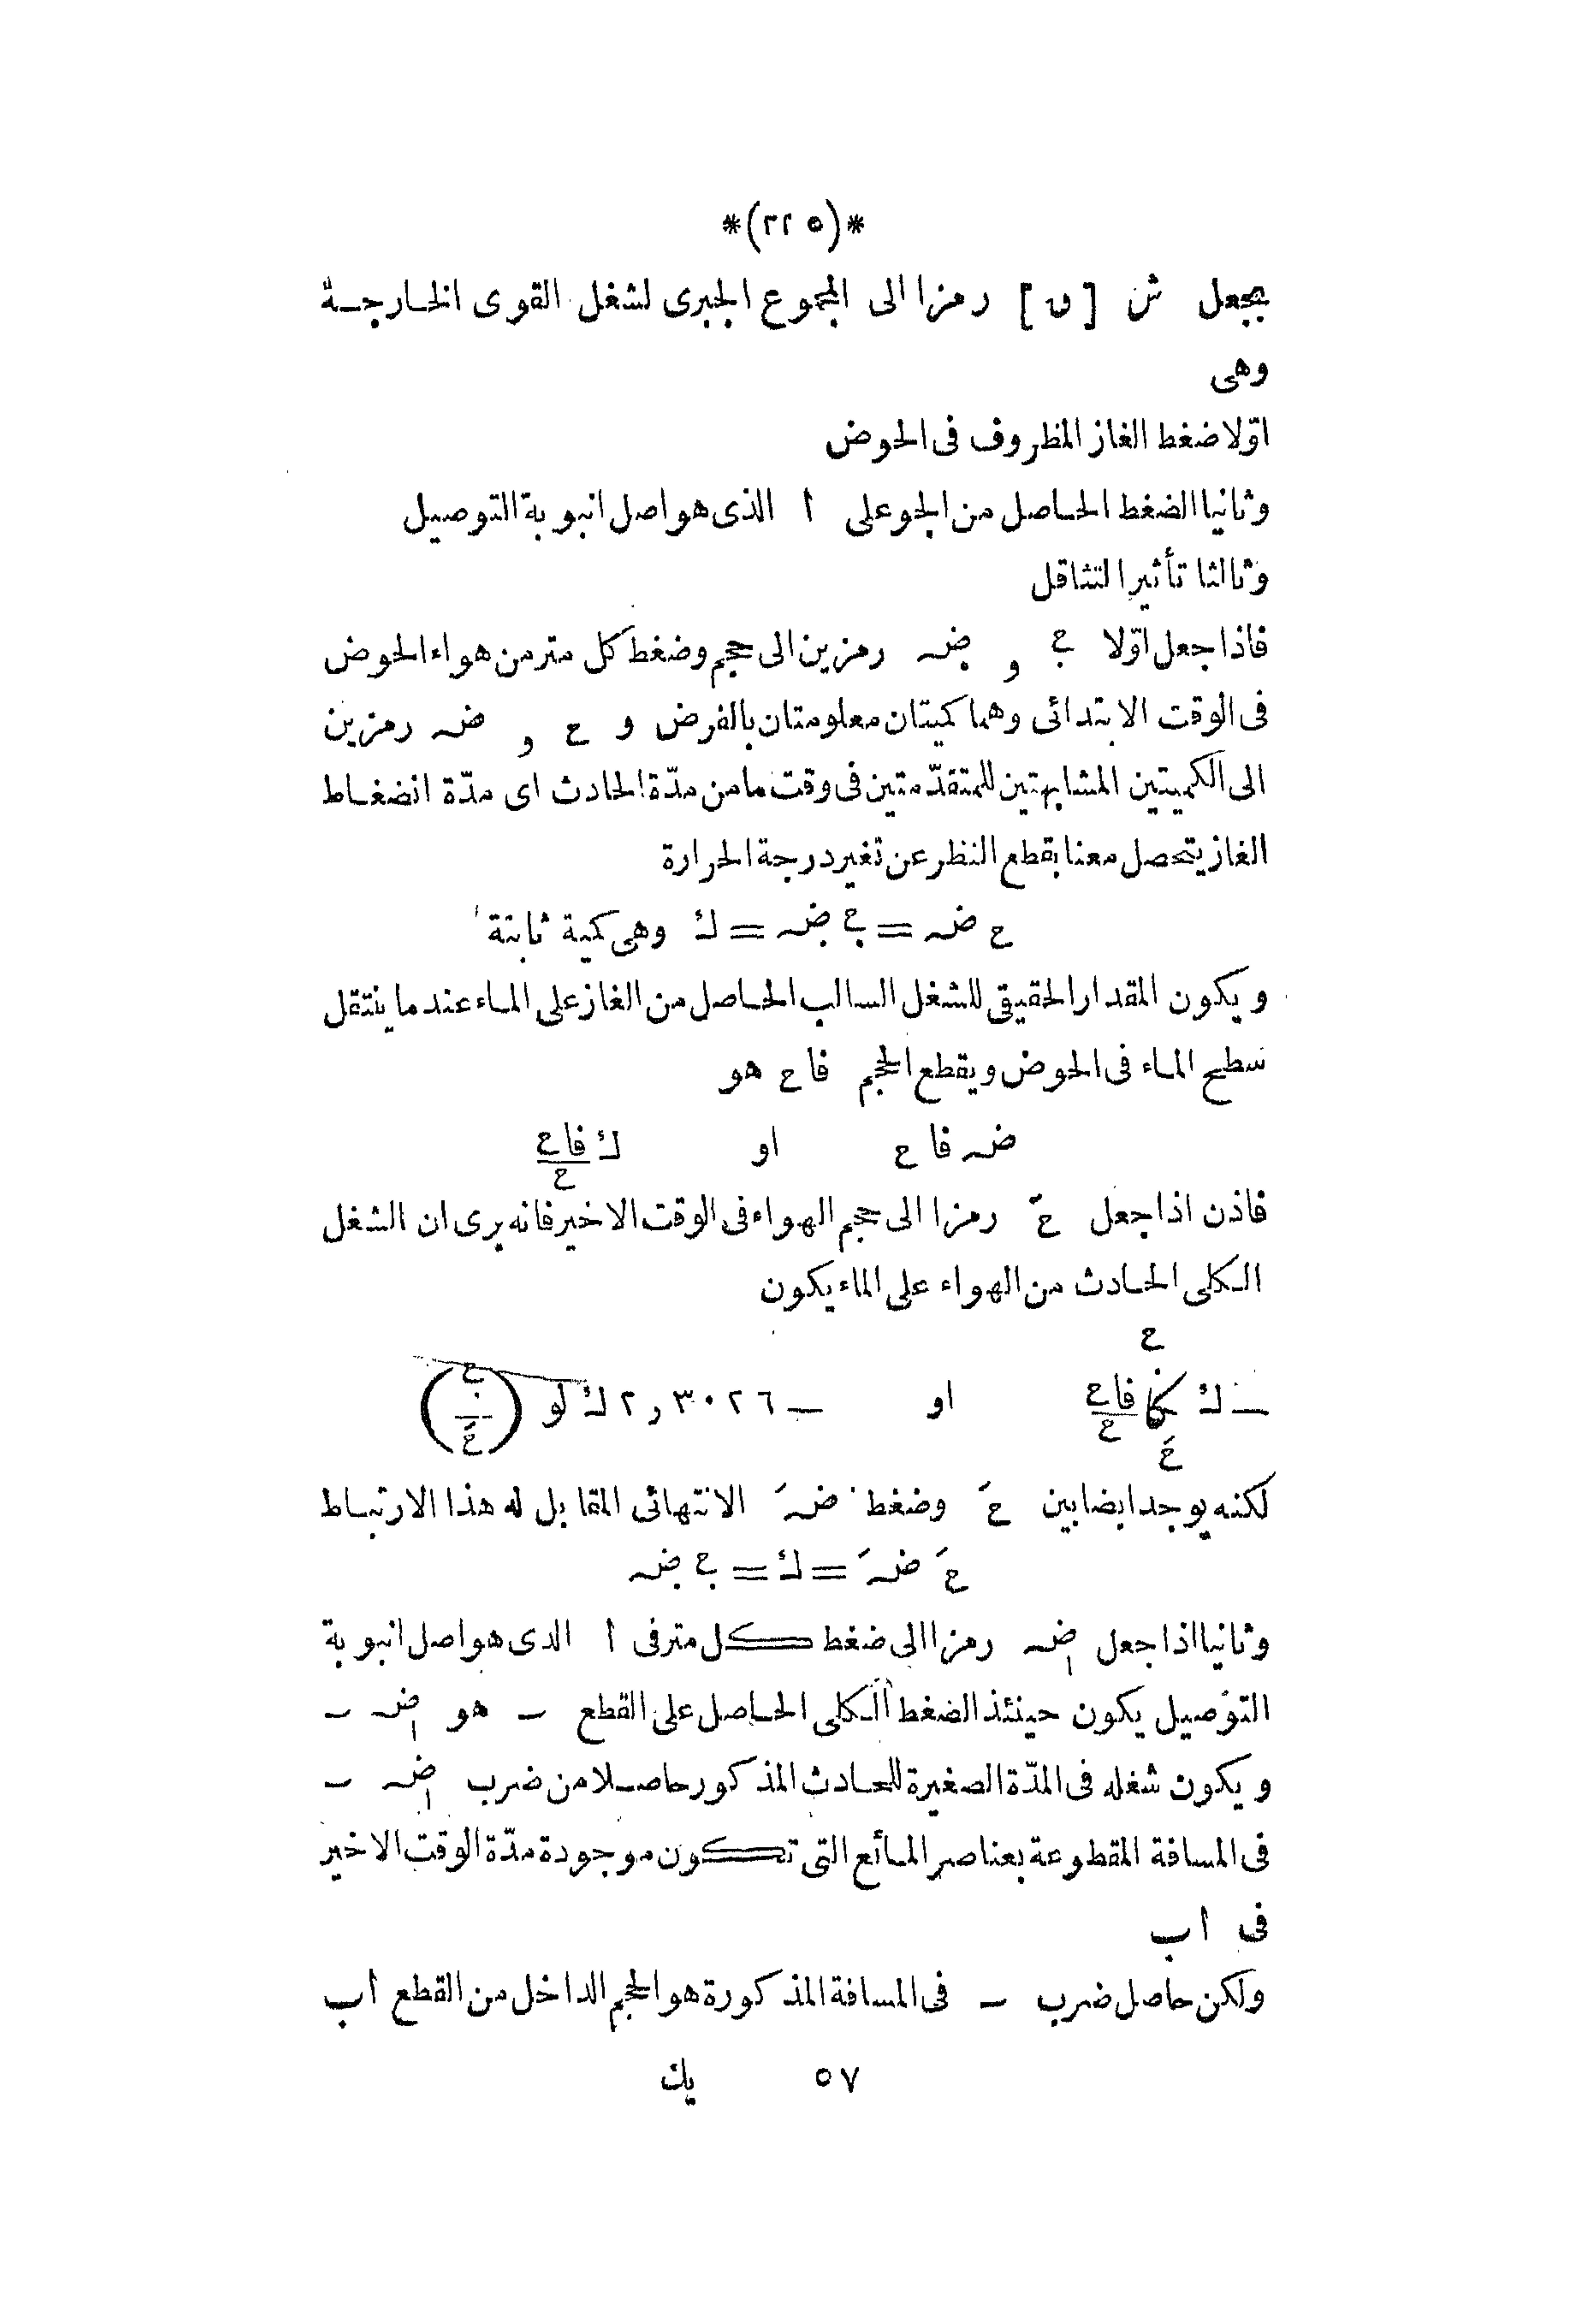 *(٢٢٥)*
بجعل ش [ ں ] رمزا الى المجموع الجبرى لشغل القوى الخارجة
وهى
اوّلا ضغط الغاز المظروف فى الحوض
وثانيا الضغط الحاصل من الجو على ا الذى هو اصل انبوبة التوصيل
وثالثا تأثير التثاقل
فاذا جعل اوّلا ح و ضہ رمزين الى حجم وضغط كل متر من هواء الحوض
فى الوقت الابتدائى وهما كميتان معلومتان بالفرض و ح و ضہ رمزين
الى الكميتين المشابهتين للمتقدّمتين فى وقت ما من مدّة الحادث اى مدّة انضغاط
الغاز يتحصل معنا بقطع النظر عن تغير درجة الحرارة
ح ضہ = ح ضہ = ك وهى كمية ثابتة
ويكون المقدار الحقيقى للشغل السالب الحاصل من الغاز على الماء عند ما ينتقل
سطح الماء فى الحوض ويقطع الحجم فا ح هو
ضہ فا ح او ك فاح/ح
فاذن اذا جعل حَ رمزا الى حجم الهواء فى الوقت الاخير فانه يرى ان الشغل
الكلى الحادث من الهواء على الماء يكون
ح
— ك فاح/ح او — ٢٫٣٠٢٦ ك لو (ح/حَ)
حَ
لكنه يوجد ايضا بين حَ وضغط ضہَ الانتهائى المقابل له هذا الارتباط
حَ ضہَ = ك = ح ضہ
وثانيا اذا جعل ضہ رمزا الى ضغط كل متر فى ا الدى هو اصل انبوبة
التوصيل يكون حينئذ الضغط الكلى الحاصل على القطع ـ هو ضہ ـ
ويكون شغله فى المدّة الصغيرة للحادث المذكور حاصلا من ضرب ضہ ـ
فى المسافة المقطوعة بعناصر المائع التى تكون موجودة مدّة الوقت الاخير
فى اب
ولكن حاصل ضرب ـ فى المسافة المذكورة هو الحجم الداخل من القطع اب
٥٧ يك